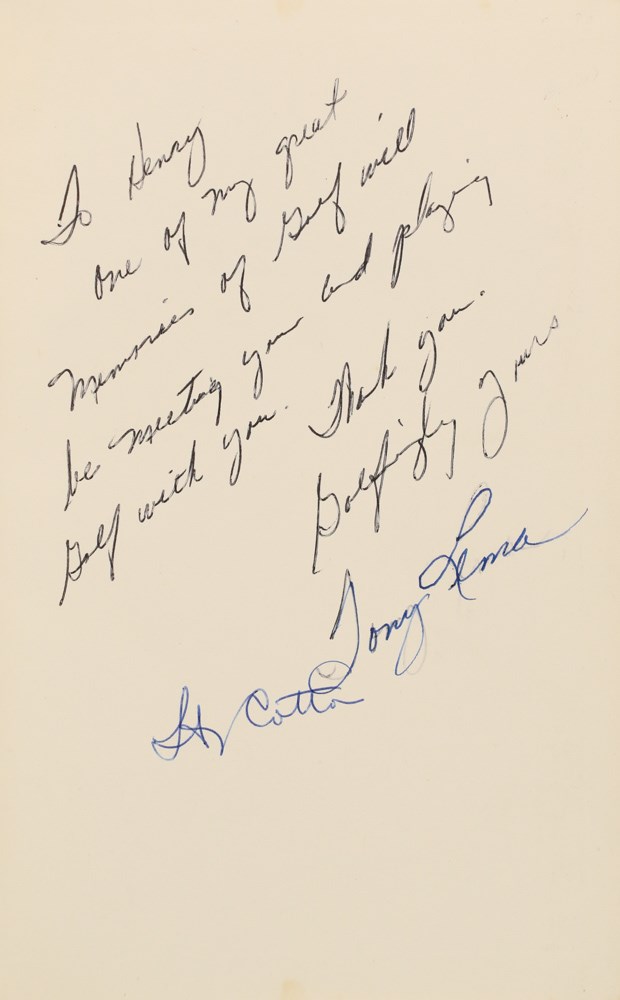 To Henry
one of my great
Memories of Golf will
be meeting you and playing
Golf with you. Thank you.
Golfingly yours
Tony Lema
H Cotton